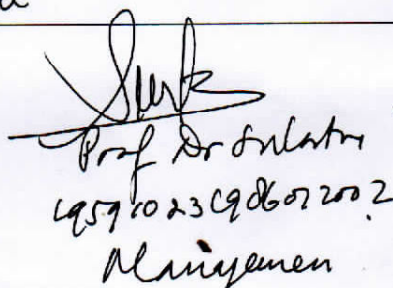 Prof Dr Sulastri
195910231986012002
Manajemen